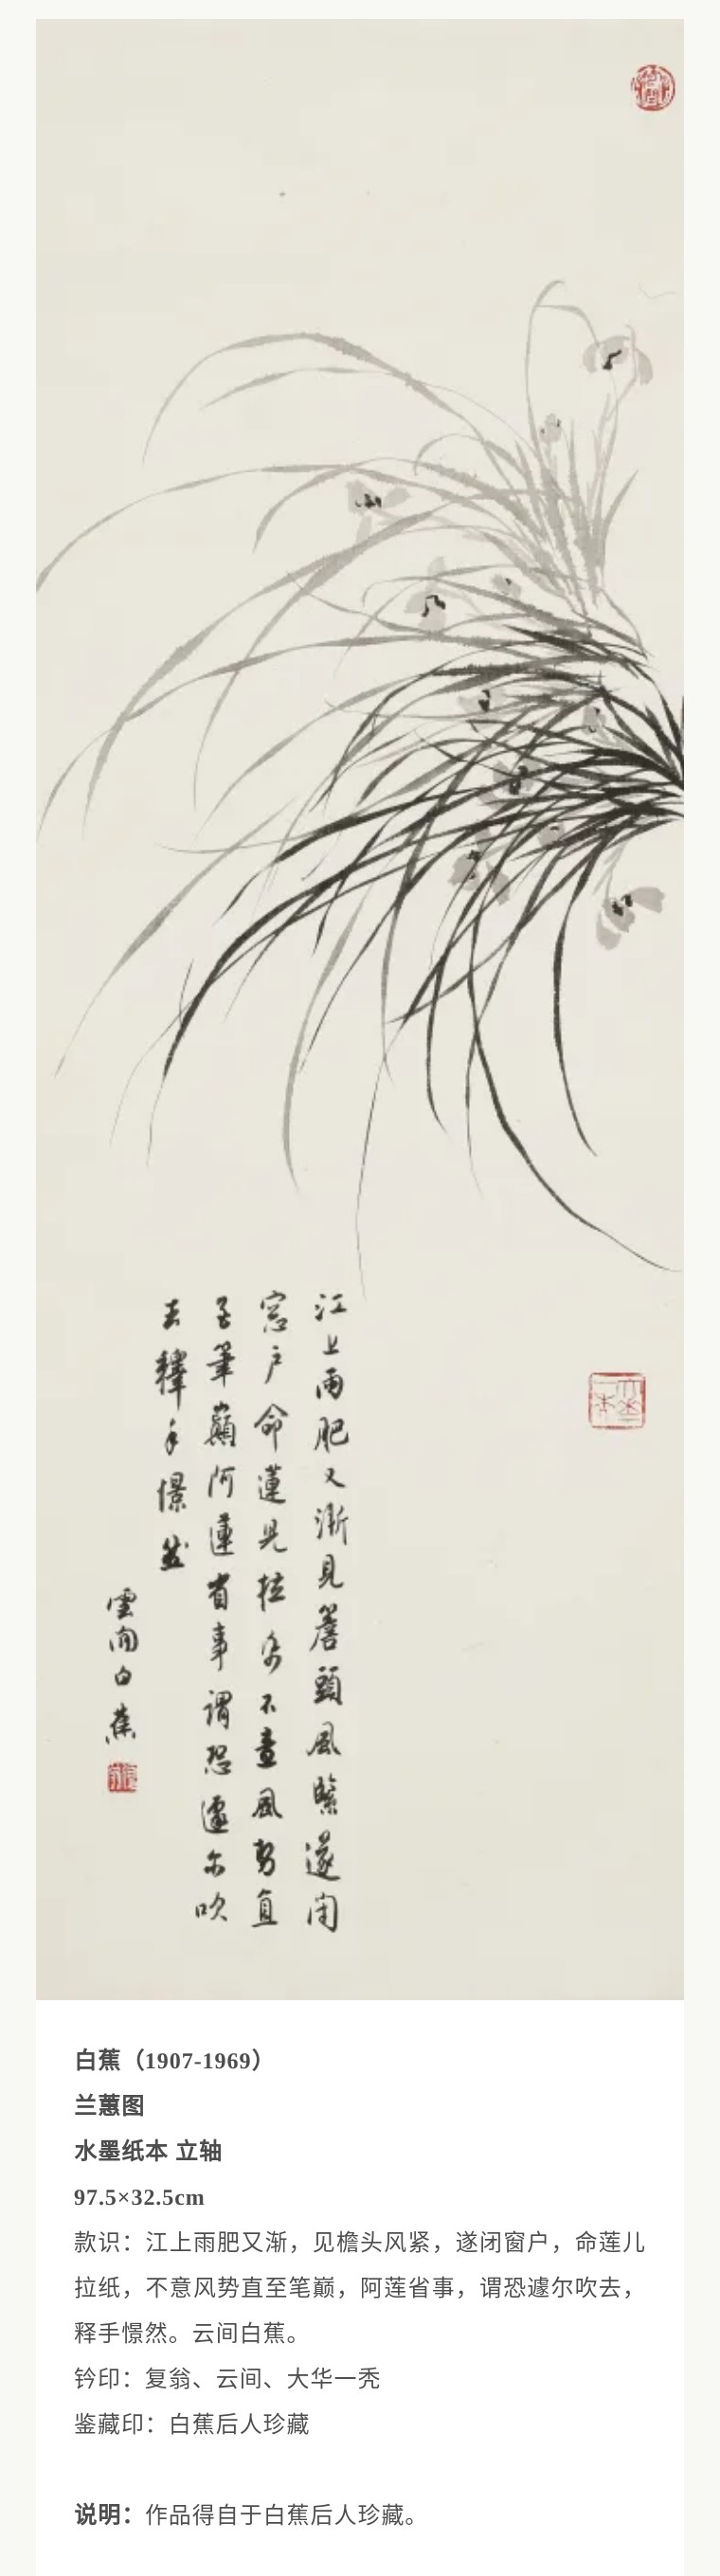 江上雨肥又漸見簷頭風緊遂闭
窓户命蓮兒拉紙不意風勢直
至筆巔阿蓮省事谓恐遽尔吹
去釋手憬然
雲间白蕉
白蕉（1907-1969）
兰蕙图
水墨纸本 立轴
97.5×32.5cm
款识：江上雨肥又渐，见檐头风紧，遂闭窗户，命莲儿
拉纸，不意风势直至笔巅，阿莲省事，谓恐遽尔吹去，
释手憬然。云间白蕉。
钤印：复翁、云间、大华一秃
鉴藏印：白蕉后人珍藏
说明：作品得自于白蕉后人珍藏。